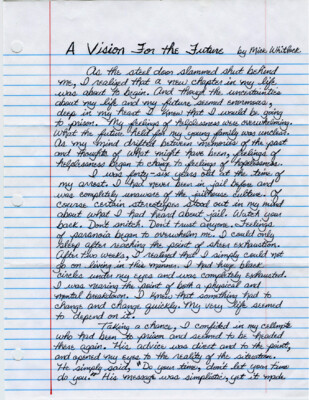 A Vision For the Future by Mike Whitlock
As the steel door slammed shut behind
me, I realized that a new chapter in my life
was about to begin. And though the uncertainties
about my life and my future seemed enormous,
deep in my heart I knew that I would be going
to prison. My feelings of helplessness were overwhelming.
What the future held for my young family was unclear.
As my mind drifted between memories of the past
and thoughts of what might have been, feelings of
helplessness began to change to feelings of hopelessness.
I was forty-six years old at the time of
my arrest. I had never been in jail before and
was completely unaware of the jailhouse culture. Of
course certain stereotypes stood out in my mind
about what I had heard about jail. Watch your
back. Don't snitch. Don't trust anyone. Feelings
of paranoia began to overwhelm me. I could only
sleep after reaching the point of sheer exhaustion.
After two weeks, I realized that I simply could not
go on living in this manner. I had huge black
circles under my eyes and was completely exhausted.
I was nearing the point of both a physical and
mental breakdown. I knew that something had to
change and change quickly. My very life seemed
to depend on it.
Taking a chance, I confided in my cellmate
who had been to prison and seemed to be headed
there again. His advice was direct and to the point,
and opened my eyes to the reality of the situation.
He simply said, "Do your time, don't let your time
do you." His message was simplistic, yet it made